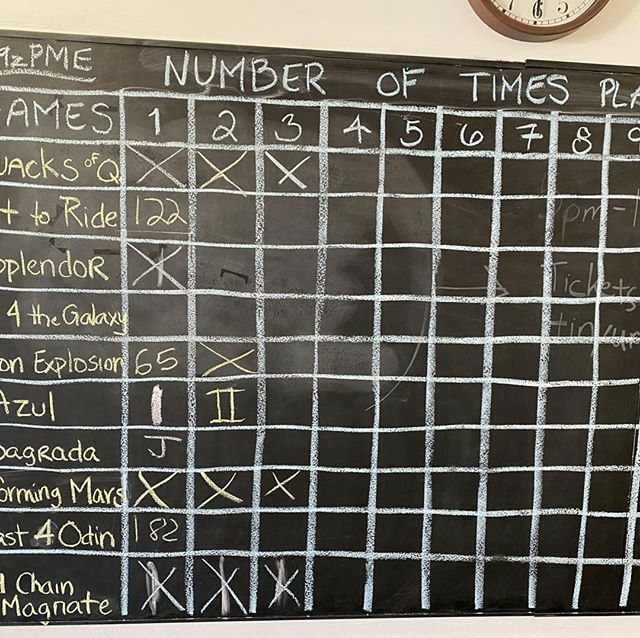 9zPME NUMBER OF TIMES PLA
AMES 1 2 3 4 5 6 7 8 9
UACKS of Q X X X
t to Ride 122
pplendoR X
4 the Galaxy
on Explosion 65 X
Azul I II
agrada J
orming Mars X X X
ast 4 Odin 182
Chain
Magnate X X X
pm-1
Tickets
tinyur